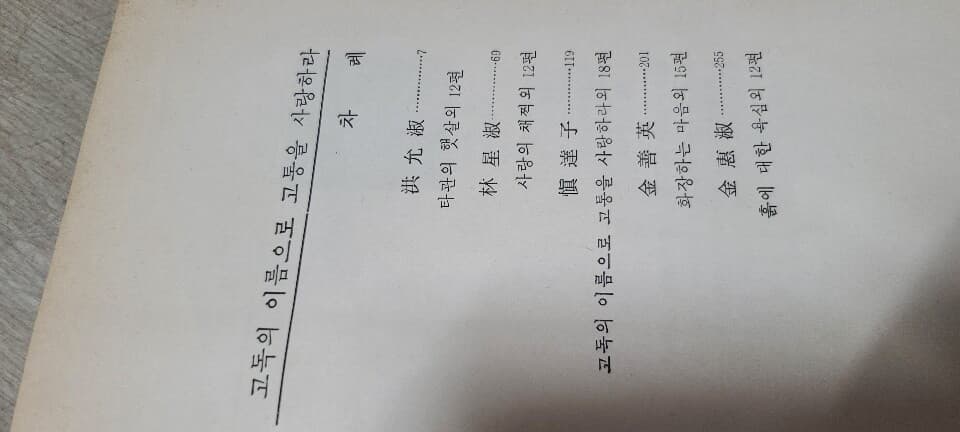 고독의 이름으로 고통을 사랑하라
차 례
洪 允 淑 ················7
타관의 햇살외 12편
林 星 淑 ················69
사랑의 채찍외 12편
愼 達 子 ············119
고독의 이름으로 고통을 사랑하라외 18편
金 善 英 ············201
화장하는 마음외 15편
金 惠 淑 ············255
흙에 대한 욕심외 12편